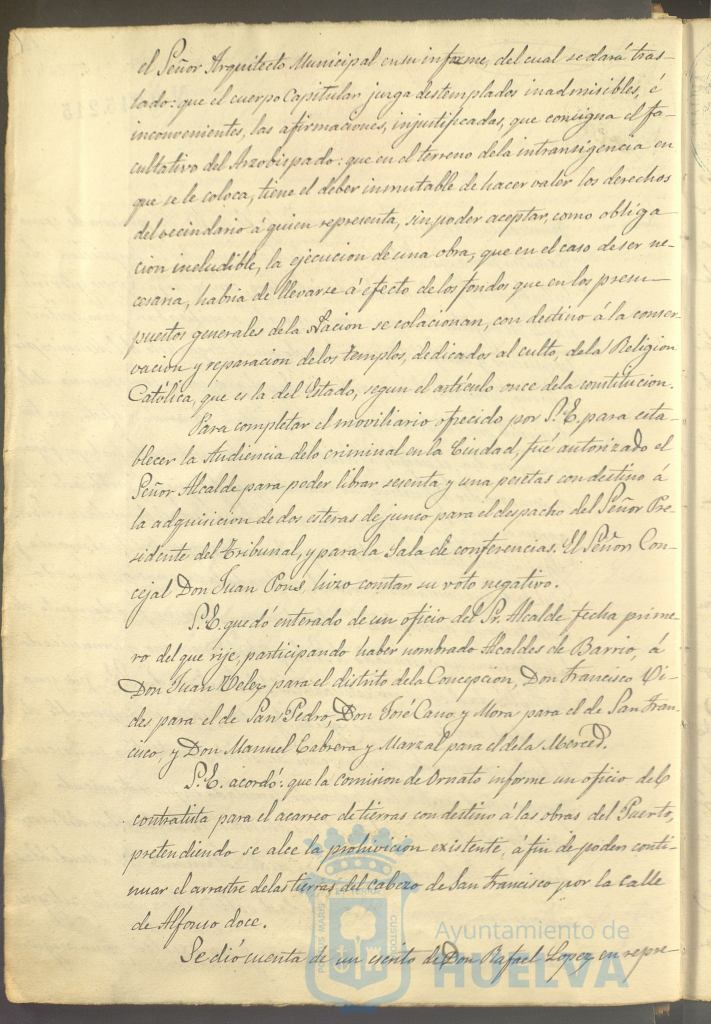 el Señor Arquitecto Municipal en su informe, del cual se dará tras-
lado: que el cuerpo Capitular juzga destemplados inadmisibles, é
inconvenientes, las afirmaciones, injustificadas, que consigna el fa-
cultativo del Arzobispado: que en el terreno dela intransigencia en
que se le coloca, tiene el deber inmutable de hacer valer los derechos
del vecindario á quien representa, sin poder aceptar, como obliga
cion ineludible, la ejecucion de una obra, que en el caso de ser ne-
cesaria, habria de llevarse á efecto de los fondos que en los presu-
puestos generales dela Nacion se colacionan, con destino á la conser
vacion y reparacion delos templos, dedicados al culto, dela Religion
Católica, que es la del Estado, segun el artículo once dela constitucion.
Para completar el moviliario ofrecido por S.E. para esta-
blecer la Audiencia delo criminal en la Ciudad, fué autorizado el
Señor Alcalde para poder librar sesenta y una pesetas con destino á
la adquisicion de dos esteras de junco para el despacho del Señor Pre-
sidente del Tribunal, y para la Sala de conferencias. El Señor Con-
cejal Don Juan Pons, hizo constar su voto negativo.
S.E. quedó enterado de un oficio del Sr. Alcalde fecha prime-
ro del que rije, participando haber nombrado Alcaldes de Barrio, á
Don Juan Velez para el distrito dela Concepcion, Don Francisco Vi-
des para el de San Pedro, Don José Cano y Mora para el de San Fran-
cisco, y Don Manuel Cabrera y Marzal para el dela Merced.
S.E. acordó: que la comision de Ornato informe un oficio del
contratista para el acarreo de tierras con destino á las obras del Puerto,
pretendiendo se alce la prohivicion existente, á fin de poder conti-
nuar el arrastre delas tierras del cabezo de San Francisco por la calle
de Alfonso doce.
Se dió cuenta de un escrito de Don Rafael Lopez, en repre-
Ayuntamiento de
HUELVA